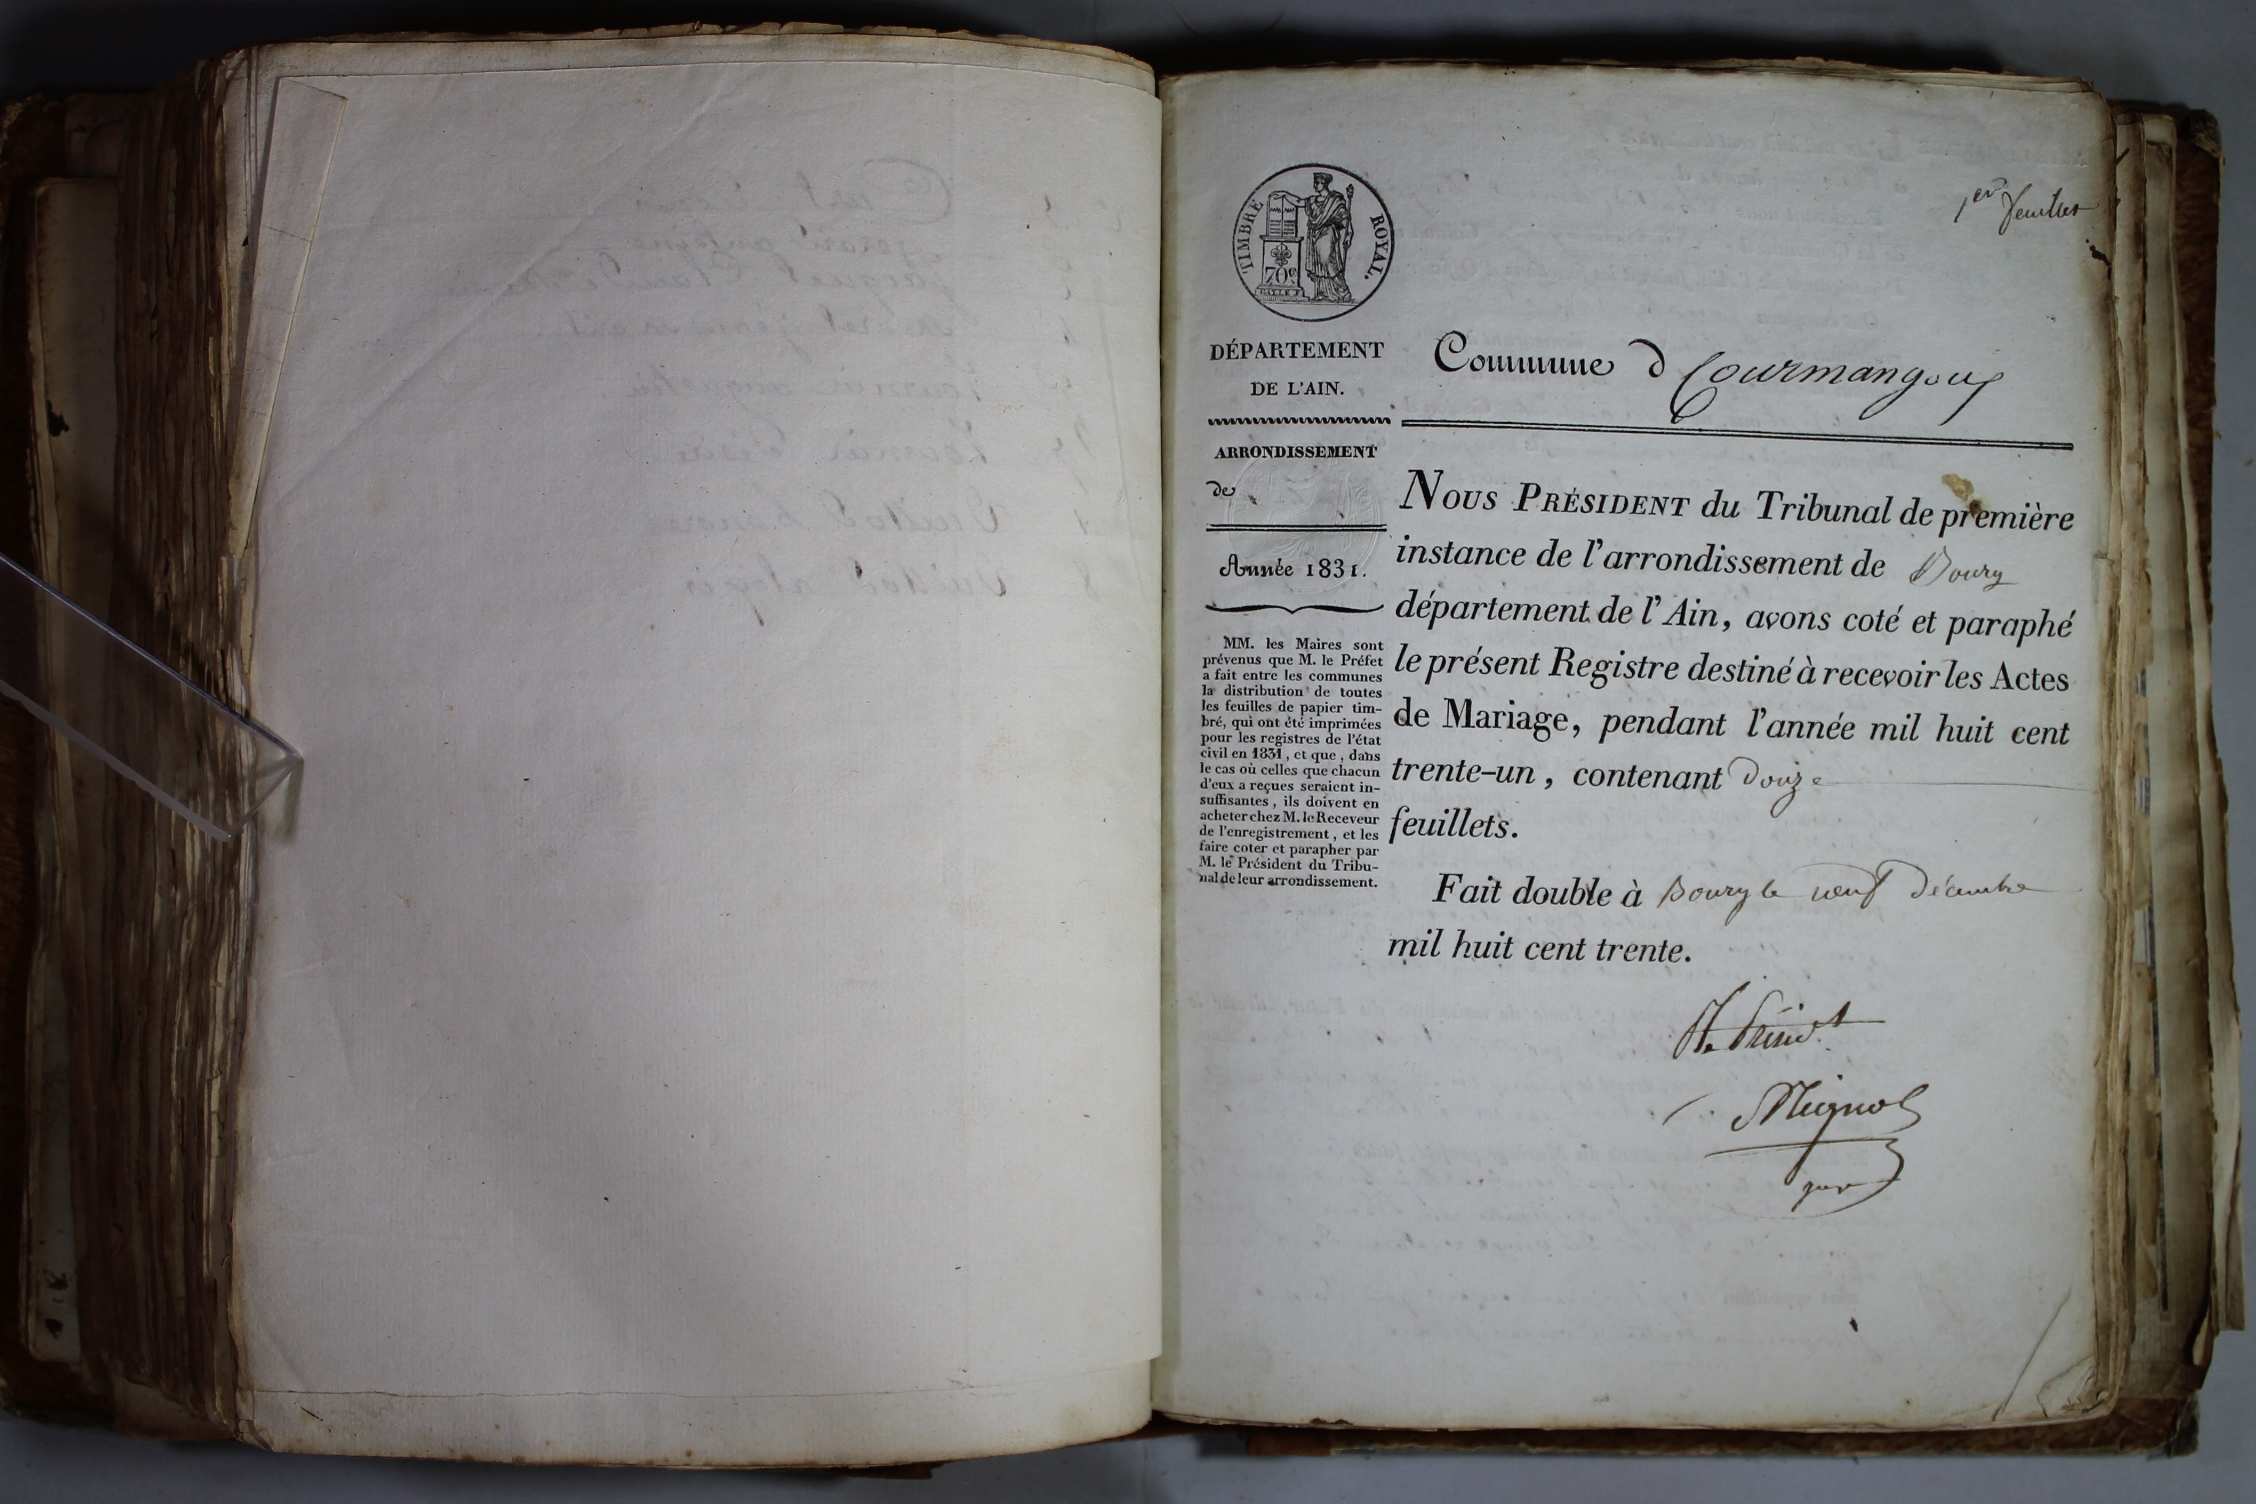 1er feuillet
TIMBRE ROYAL.
70c
DÉPARTEMENT
DE L'AIN.
ARRONDISSEMENT
de
Année 1831.
MM. les Maires sont
prévenus que M. le Préfet
a fait entre les communes
la distribution de toutes
les feuilles de papier tim-
bré, qui ont été imprimées
pour les registres de l'état
civil en 1831, et que, dans
le cas où celles que chacun
d'eux a reçues seraient in-
suffisantes, ils doivent en
acheter chez M. le Receveur
de l'enregistrement, et les
faire coter et parapher par
M. le Président du Tribu-
nal de leur arrondissement.
Commune d Courmangoux
NOUS PRÉSIDENT du Tribunal de première
instance de l'arrondissement de Bourg
département de l'Ain, avons coté et paraphé
le présent Registre destiné à recevoir les Actes
de Mariage, pendant l'année mil huit cent
trente-un, contenant Douze
feuillets.
Fait double à Bourg le neuf Décembre
mil huit cent trente.